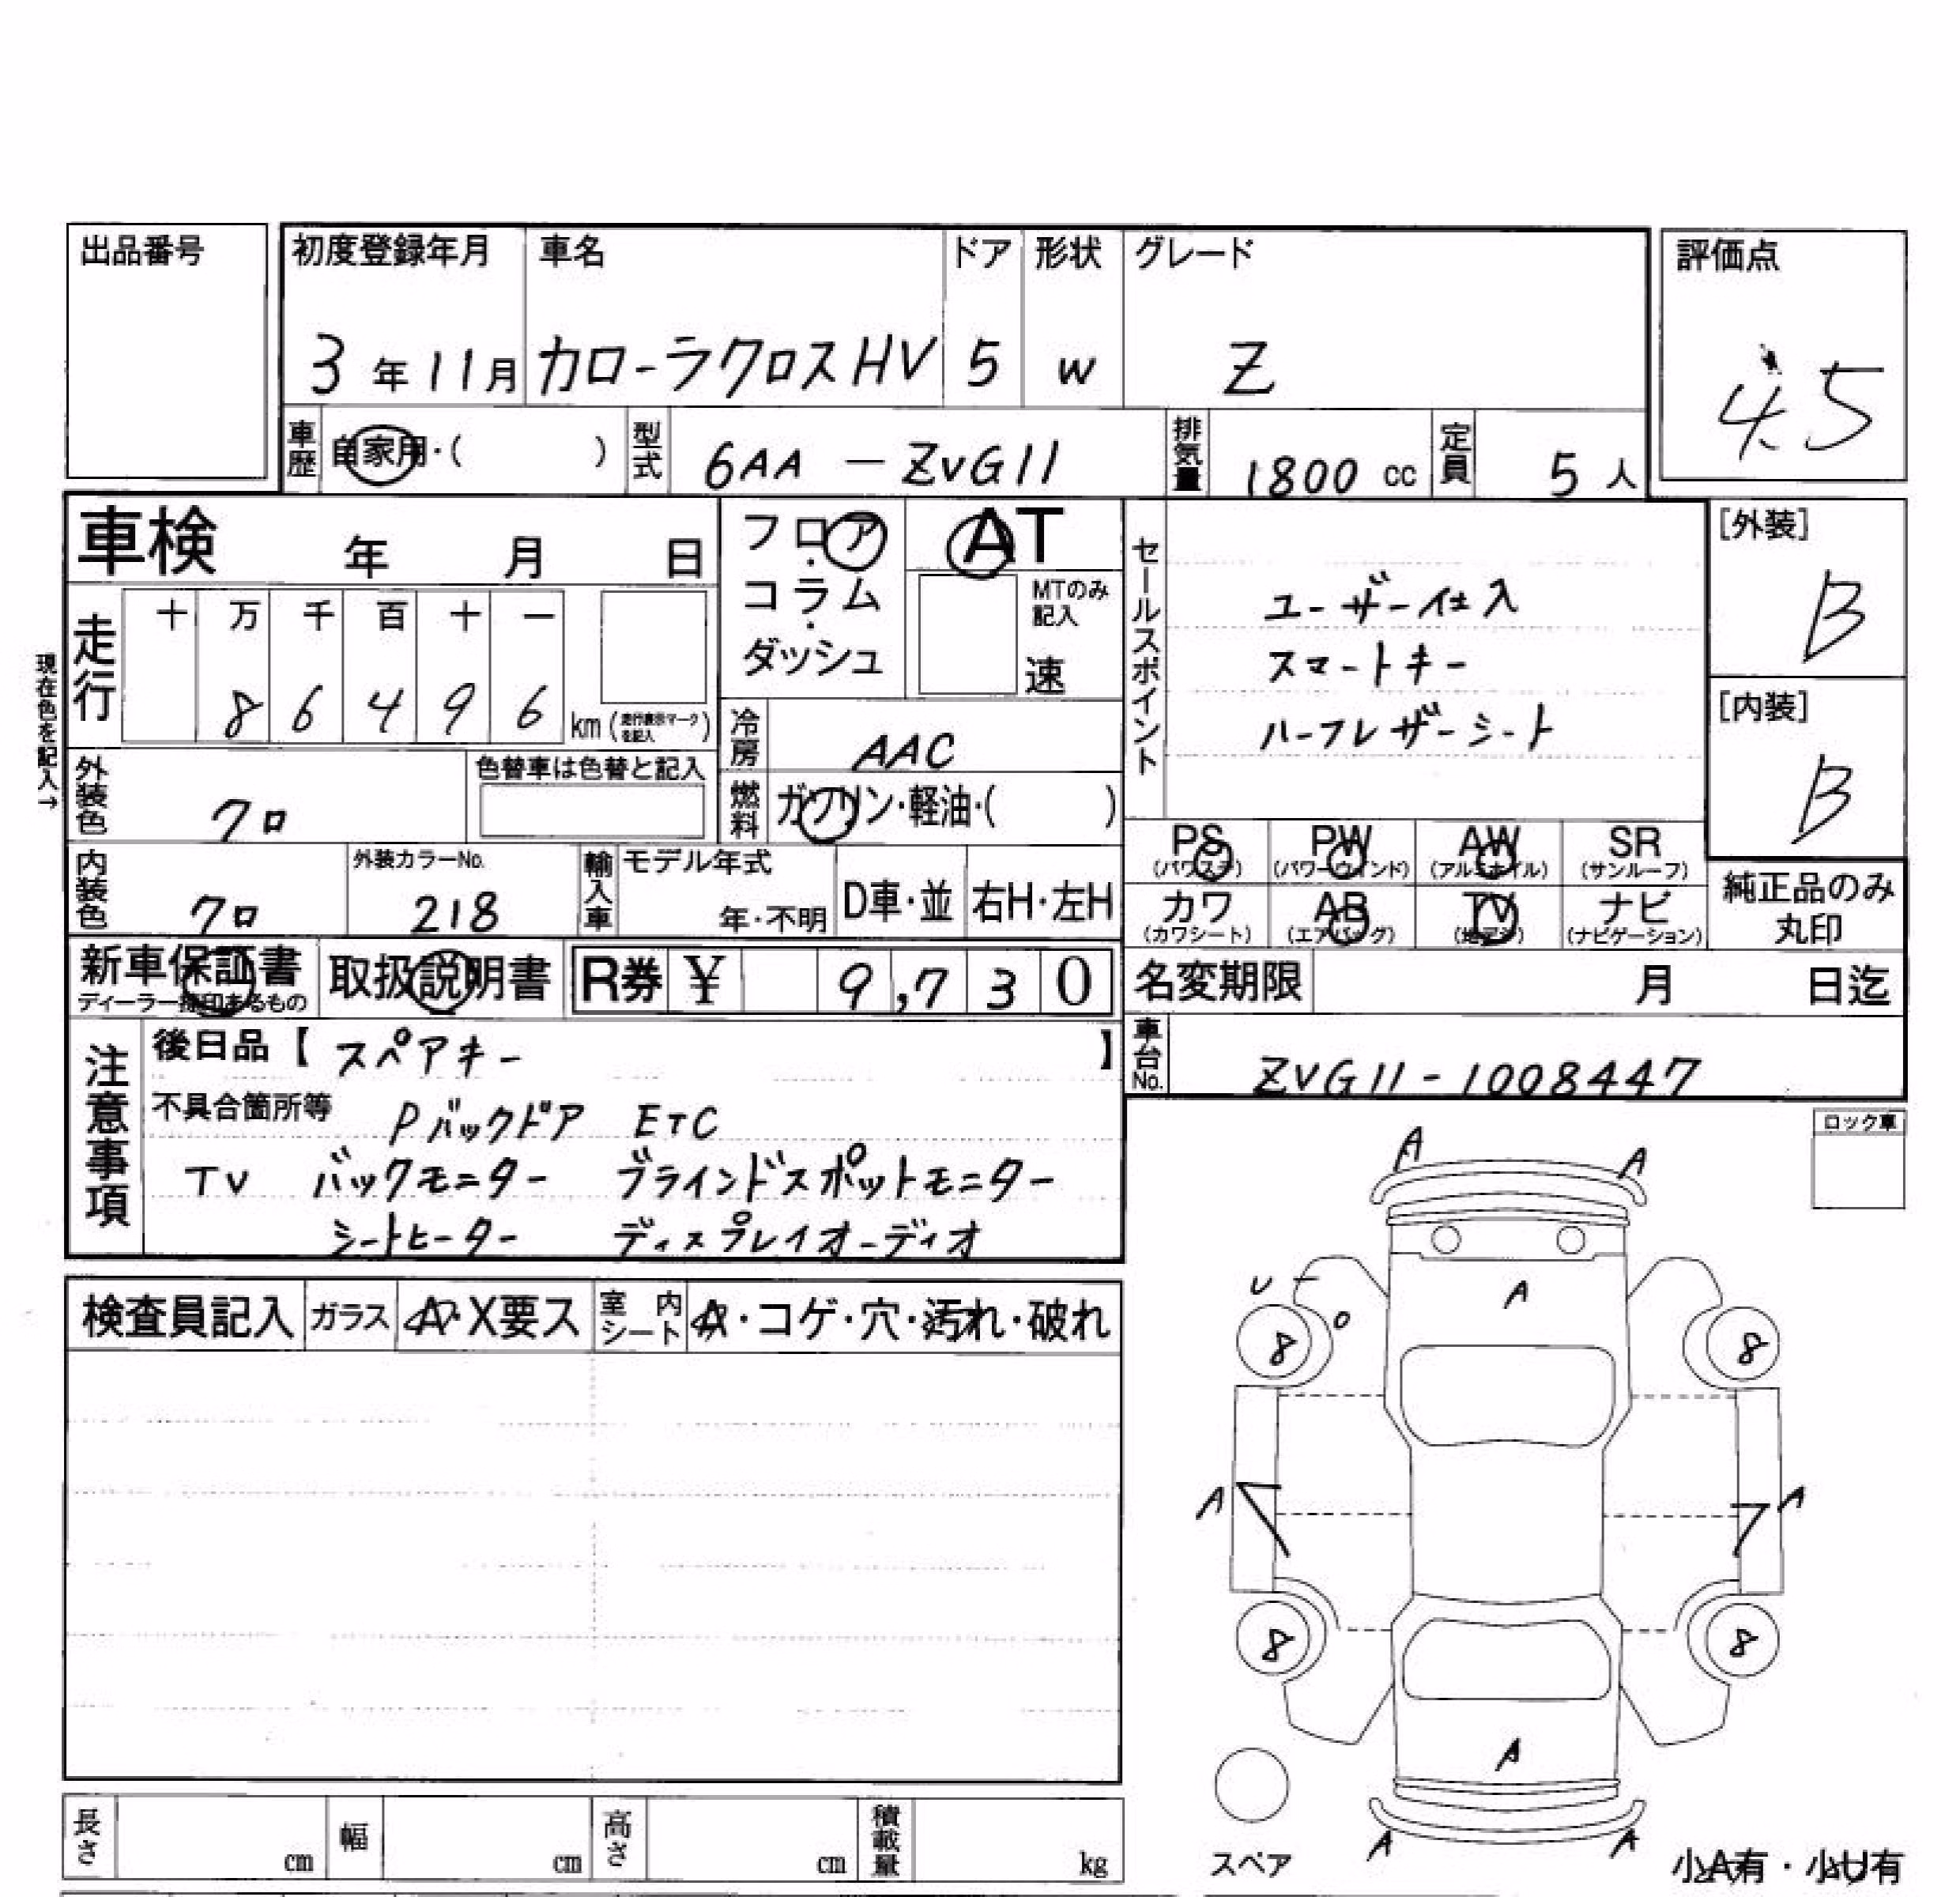 出品番号
初度登録年月 車名 ドア 形状 グレード 評価点
3年11月 カローラクロスHV 5 W Z 4.5
車歴 自家用・( ) 型式 6AA-ZVG11 排気量 1800cc 定員 5人
車検 年 月 日
フロア・コラム・ダッシュ
AT
MTのみ記入
速
セールスポイント
ユーザー仕入
スマートキー
ハーフレザーシート
[外装]
B
[内装]
B
現在色を記入→
走行 十 万 千 百 十 一
8 6 4 9 6 km(走行表示マークを記入)
冷房 AAC
燃料 ガソリン・軽油・( )
外装色 クロ 色替車は色替と記入
内装色 クロ 外装カラーNo. 218
輸入車 モデル年式 年・不明 D車・並 右H・左H
PS (パワステ) PW (パワーウインド) AW (アルミホイル) SR (サンルーフ)
カワ (カワシート) AB (エアバッグ) TV (地デジ) ナビ (ナビゲーション)
純正品のみ丸印
新車保証書 ディーラー捺印あるもの 取扱説明書 R券 ¥ 9,730
名変期限 月 日迄
車台No. ZVG11-1008447
注意事項
後日品【 スペアキー 】
不具合箇所等 Pバックドア ETC
TV バックモニター ブラインドスポットモニター
シートヒーター ディスプレイオーディオ
検査員記入 ガラス A・X要ス 室内シート A・コゲ・穴・汚れ・破れ
ロック車
A A
U A
8 O 8
A A
8 8
A
A A
スペア
小A有・小U有
長さ cm 幅 cm 高さ cm 積載量 kg